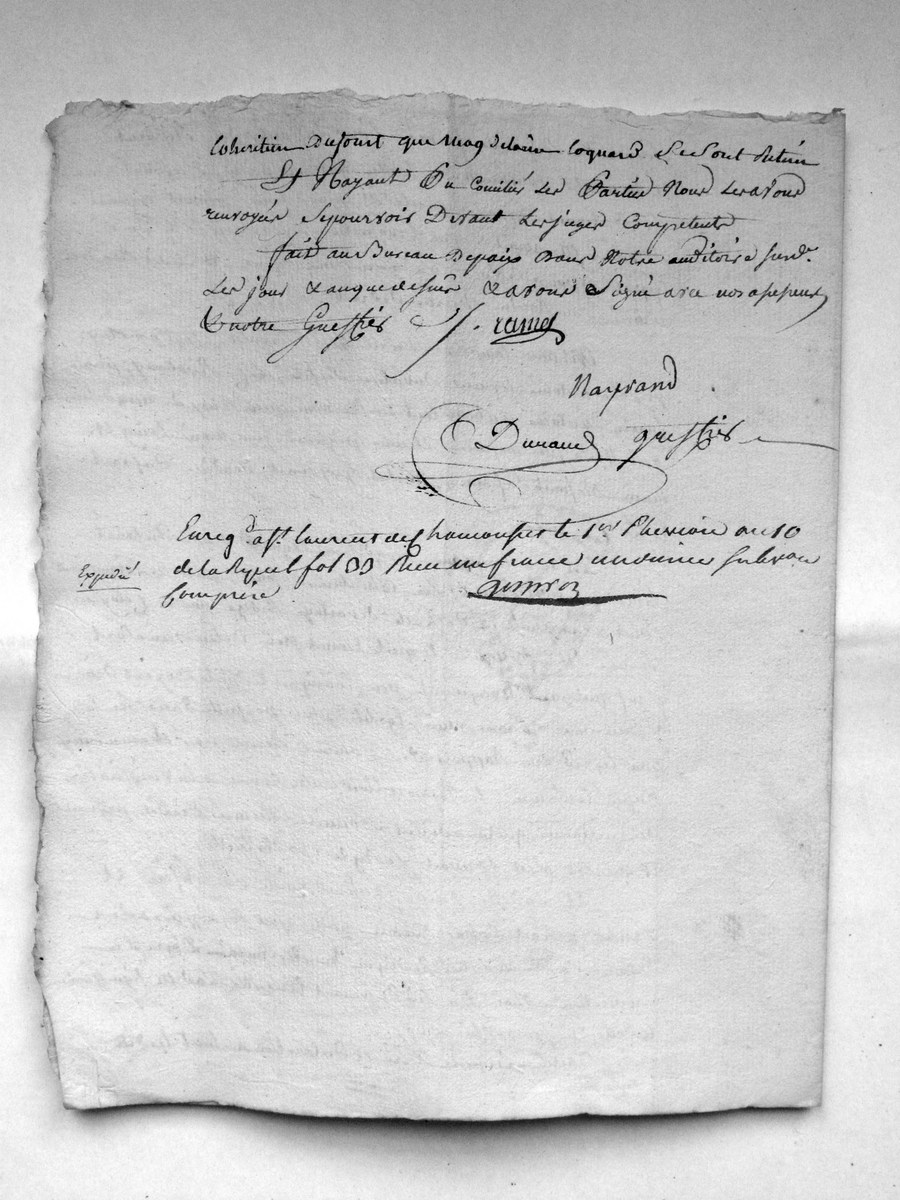 Coheritier Dufour que Magdelaine Coquard se sont retiré
Et Nayant Pu Conciliés Les Partiës Nous Les avons
renvoyés Se pourvoir Devant Les juges Competents
fait au Bureau De paix Dans Notre auditoire susd.
Les jour & an que dessus & avons Signé avec nos assesseurs
& notre Greffiés
Nayrand
Durand greffiés
Enreg. a St. laurent de Chamousset le 1er an 10
de la Rep. fol 33 Recu un franc un decime subvon
Comprise
Expedié